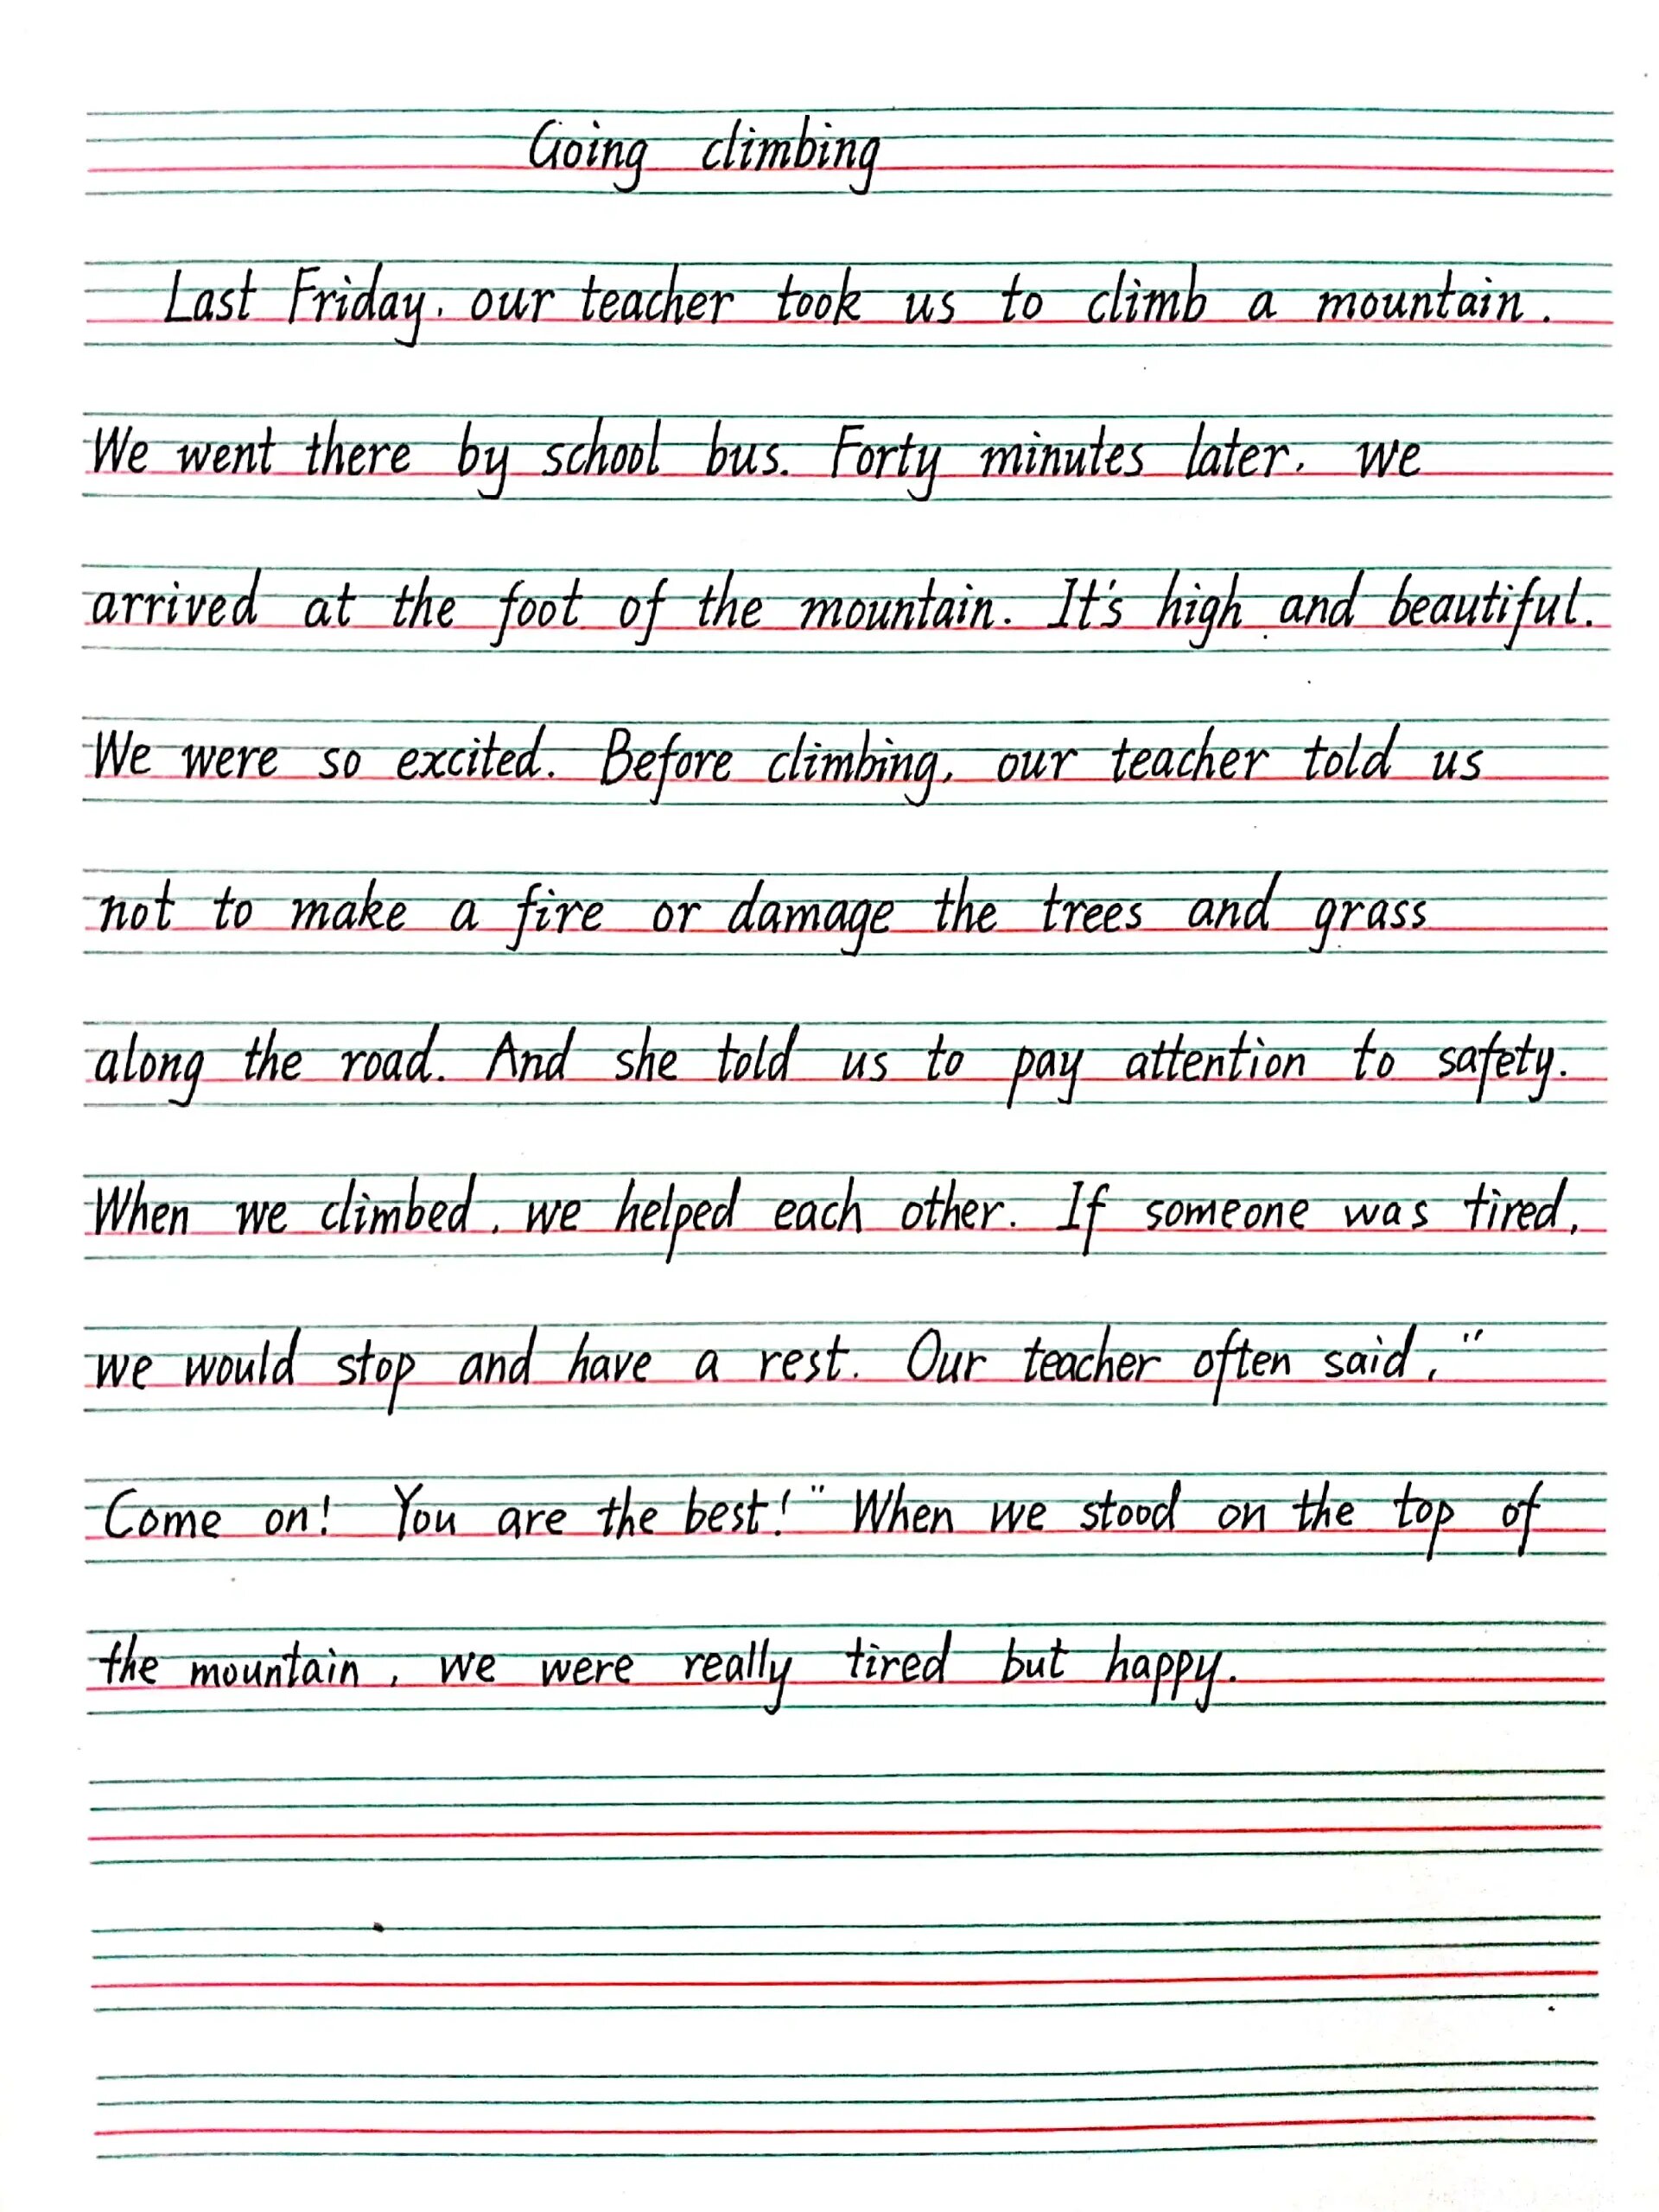 Going climbing
Last Friday, our teacher took us to climb a mountain.
We went there by school bus. Forty minutes later, we
arrived at the foot of the mountain. It's high and beautiful.
We were so excited. Before climbing, our teacher told us
not to make a fire or damage the trees and grass
along the road. And she told us to pay attention to safety.
When we climbed, we helped each other. If someone was tired,
we would stop and have a rest. Our teacher often said, "
Come on! You are the best!" When we stood on the top of
the mountain, we were really tired but happy.